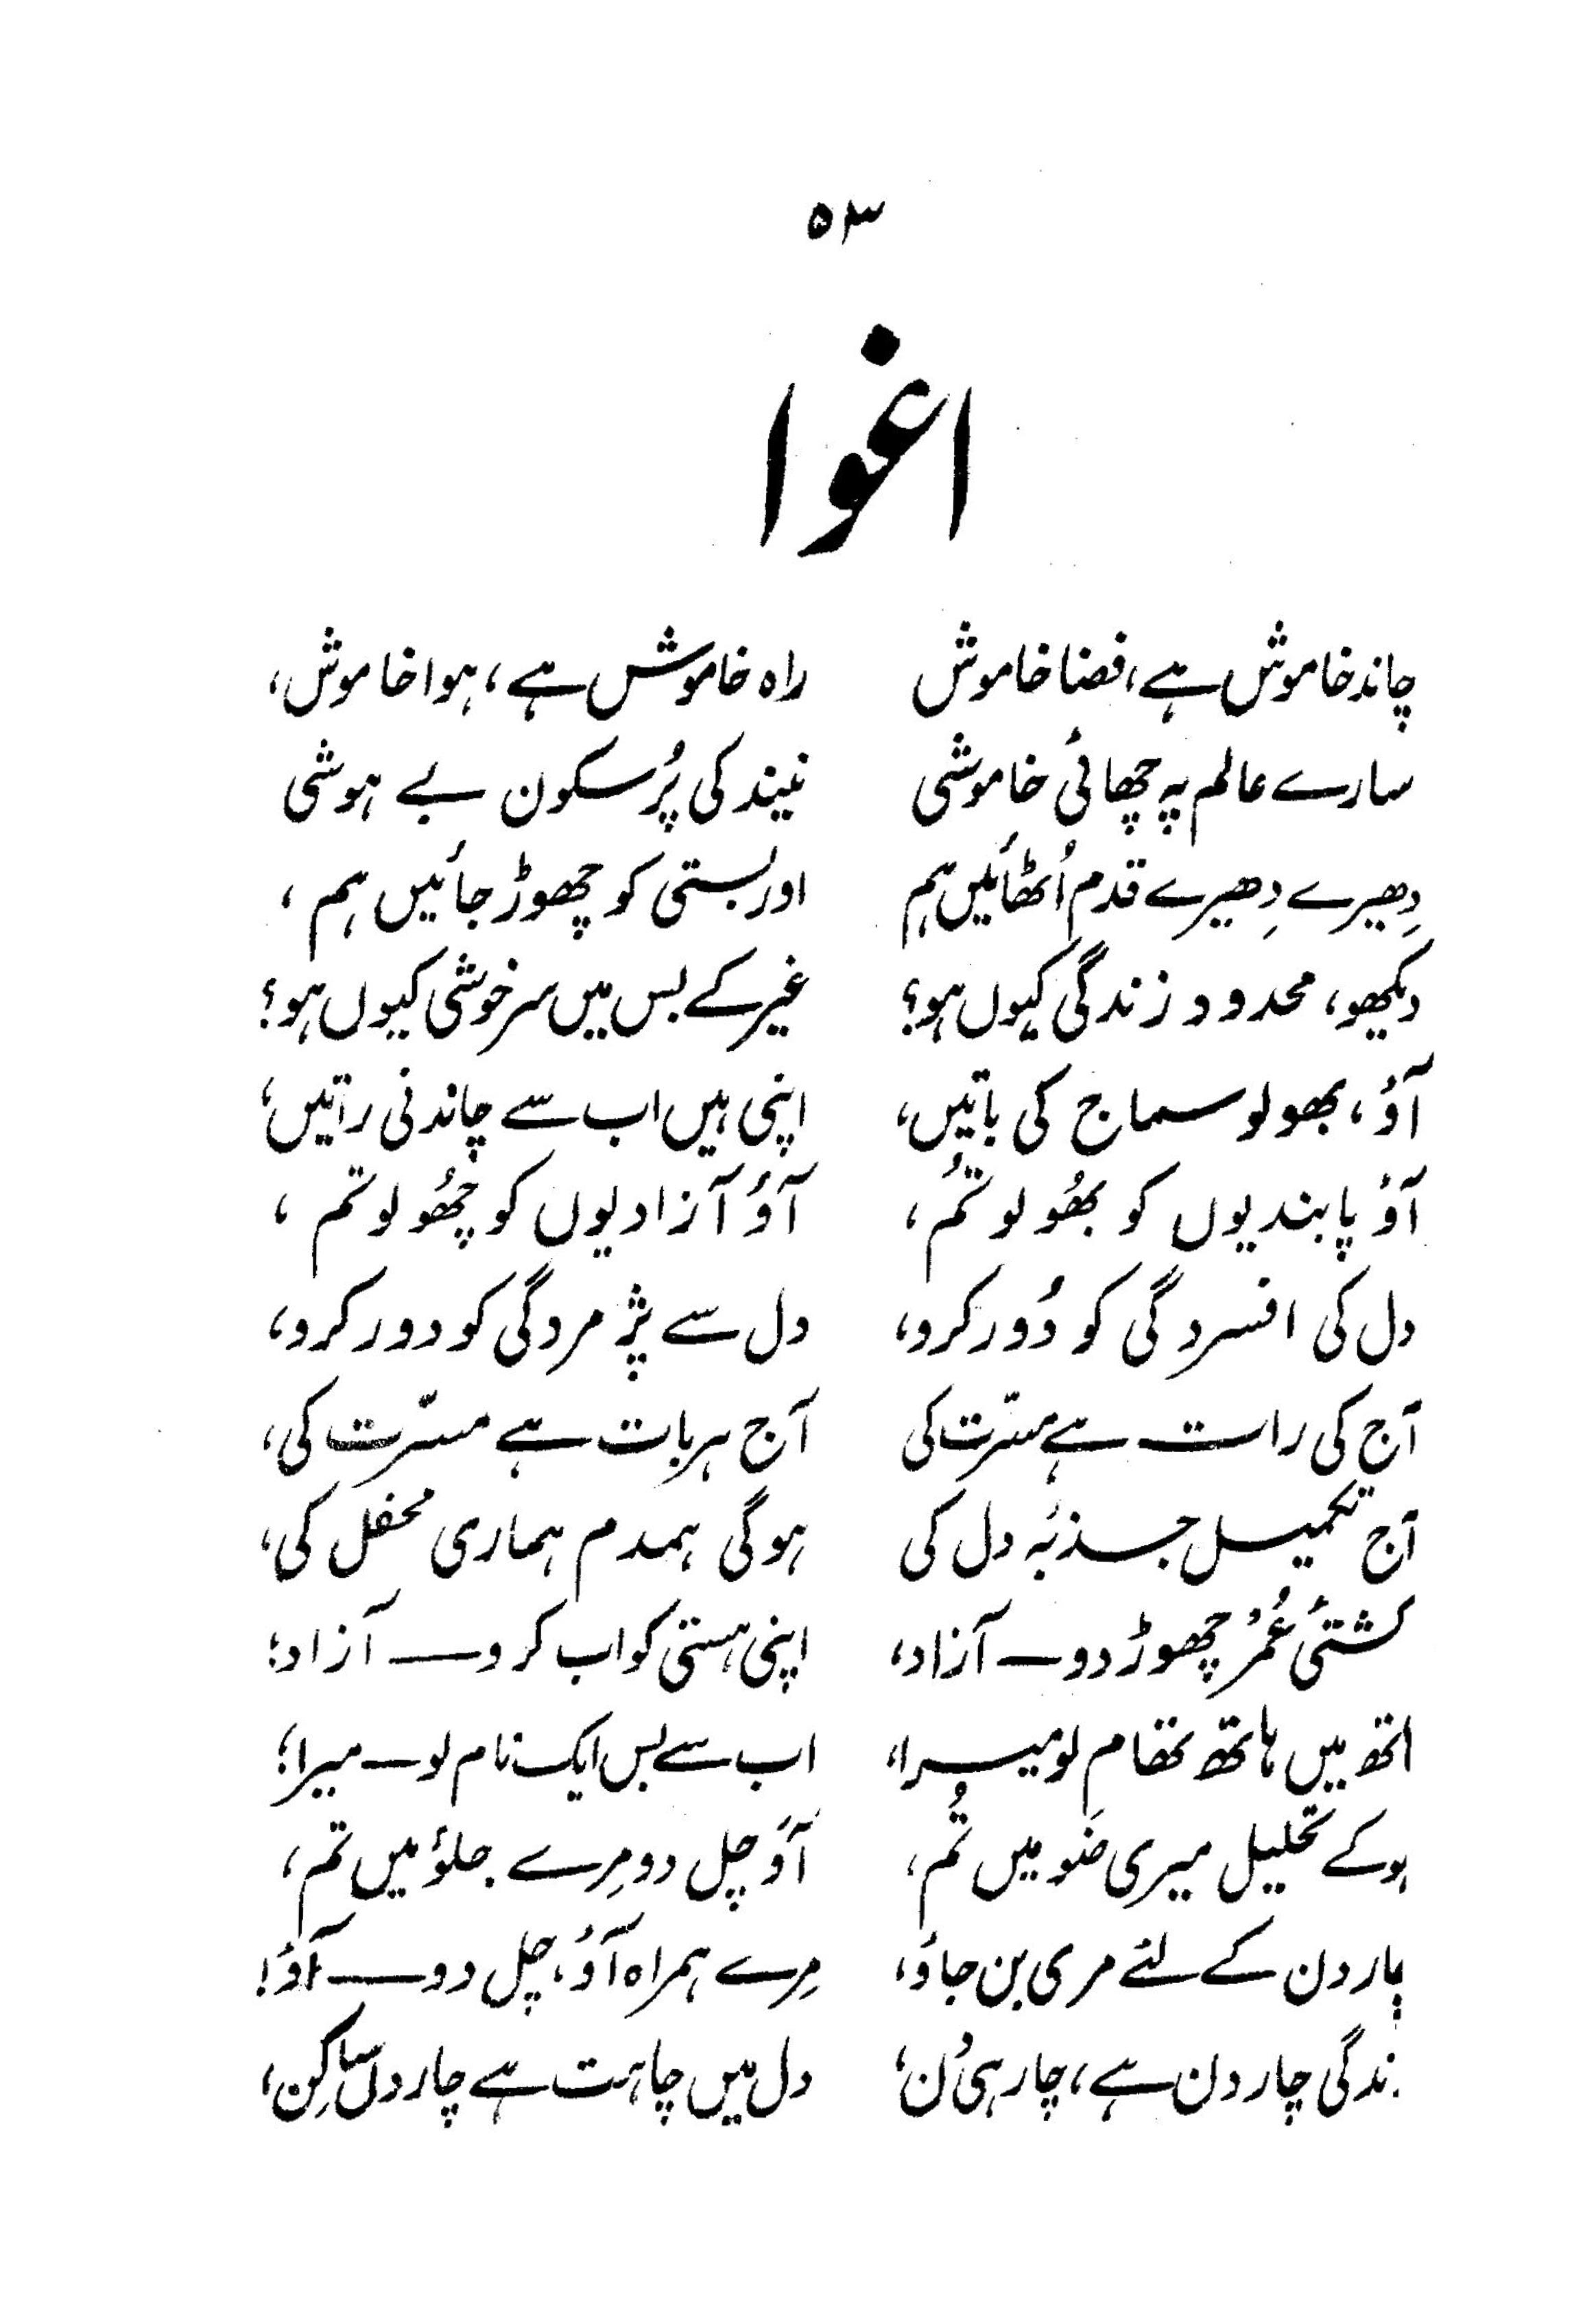 ۵۳
اغوا
چاند خاموش ہے، فضا خاموش راہ خاموش ہے، ہوا خاموش،
سارے عالم پہ چھائی خاموشی نیند کی پُرسکون بے ہوشی
دِھیرے دِھیرے قدم اُٹھائیں ہم اور بستی کو چھوڑ جائیں ہم،
دیکھو، محدود زندگی کیوں ہو؟ غیر کے بس میں سرخوشی کیوں ہو؟
آؤ، بھولو سماج کی باتیں، اپنی ہیں اب سے چاندنی راتیں؛
آؤ پابندیوں کو بھُولو تُم، آؤ آزادیوں کو چھُولو تم،
دل کی افسردگی کو دُور کرو، دل سے پژمردگی کو دور کرو،
آج کی رات ہے مسّرت کی آج ہر بات ہے مسّرت کی،
آج تکمیل جذبۂ دل کی ہوگی ہمدم ہماری محفل کی،
کشتیٔ عُمْر چھوڑ دو ـــ آزاد، اپنی ہستی کو اب کرو ـــ آزاد؛
اتھ میں ہاتھ تھام لو میرا، اب سے بس ایک نام لو ـــ میرا؛
ہوکے تحلیل میری ضَو میں تُم، آؤ چل دو مِرے جلؤ میں تم،
چار دن کے لئے مری بن جاؤ، مِرے ہمراہ آؤ، چل دو ـــ آؤ!
ندگی چار دن ہے، چار ہی دُن؛ دل میں چاہت ہے چار دل ساکِن،